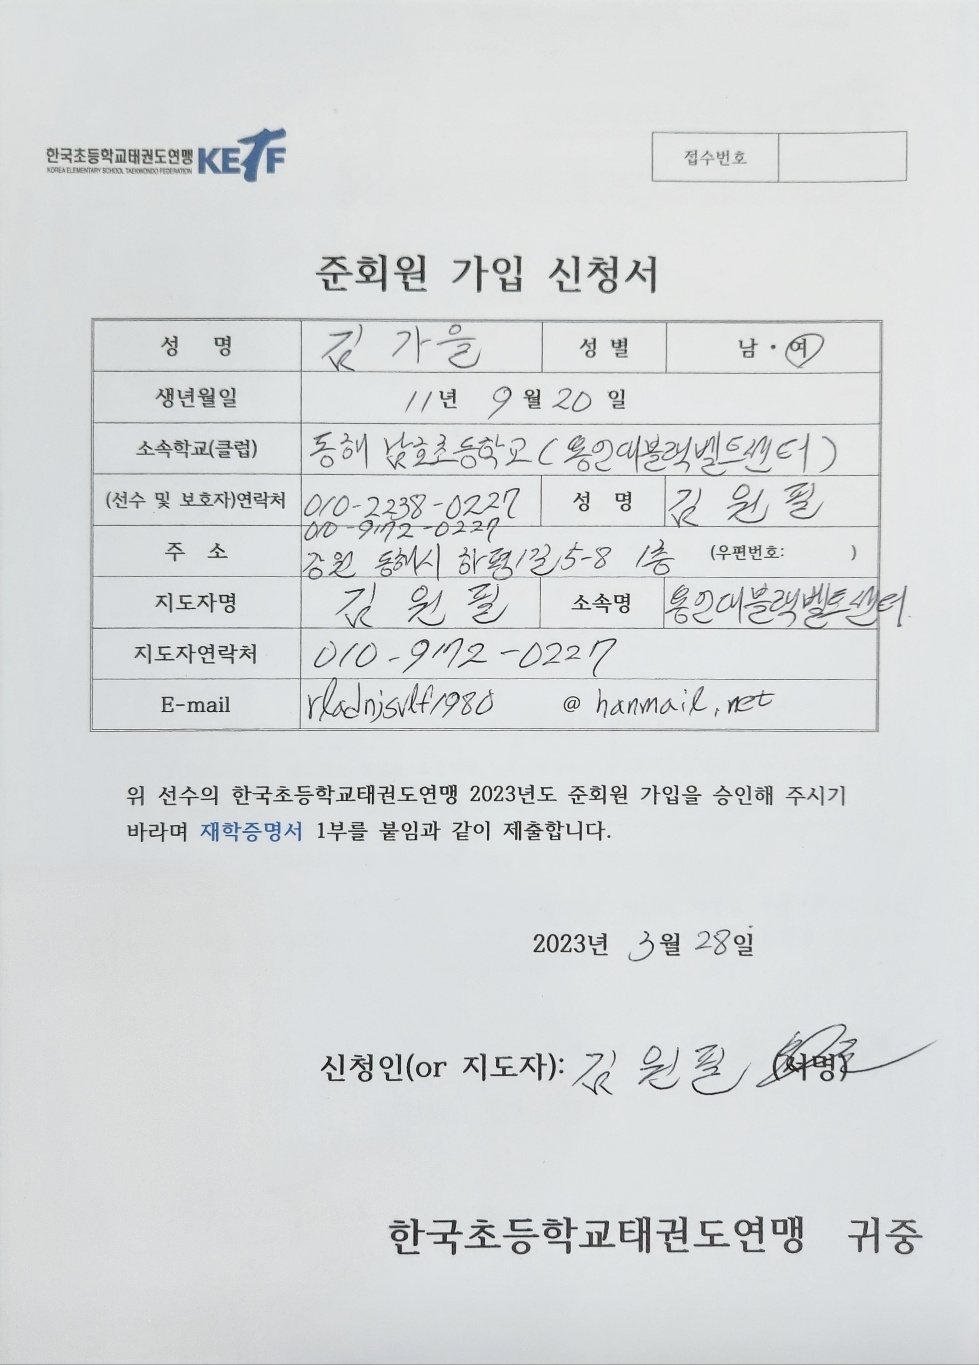 한국초등학교태권도연맹 KETF
KOREA ELEMENTARY SCHOOL TAEKWONDO FEDERATION
접수번호
준회원 가입 신청서
성 명 김 가을 성 별 남 · 여
생년월일 11년 9월 20일
소속학교(클럽) 동해 남호초등학교(용인대블랙벨트센터)
(선수 및 보호자)연락처 010-2238-0227 성 명 김 원 필
010-9172-0227
주 소 강원 동해시 하평1길 5-8 1층 (우편번호: )
지도자명 김 원 필 소속명 용인대블랙벨트센터
지도자연락처 010-9172-0227
E-mail rladnjsvlf1980 @ hanmail.net
위 선수의 한국초등학교태권도연맹 2023년도 준회원 가입을 승인해 주시기
바라며 재학증명서 1부를 붙임과 같이 제출합니다.
2023년 3월 28일
신청인(or 지도자): 김 원 필 (서명)
한국초등학교태권도연맹 귀중